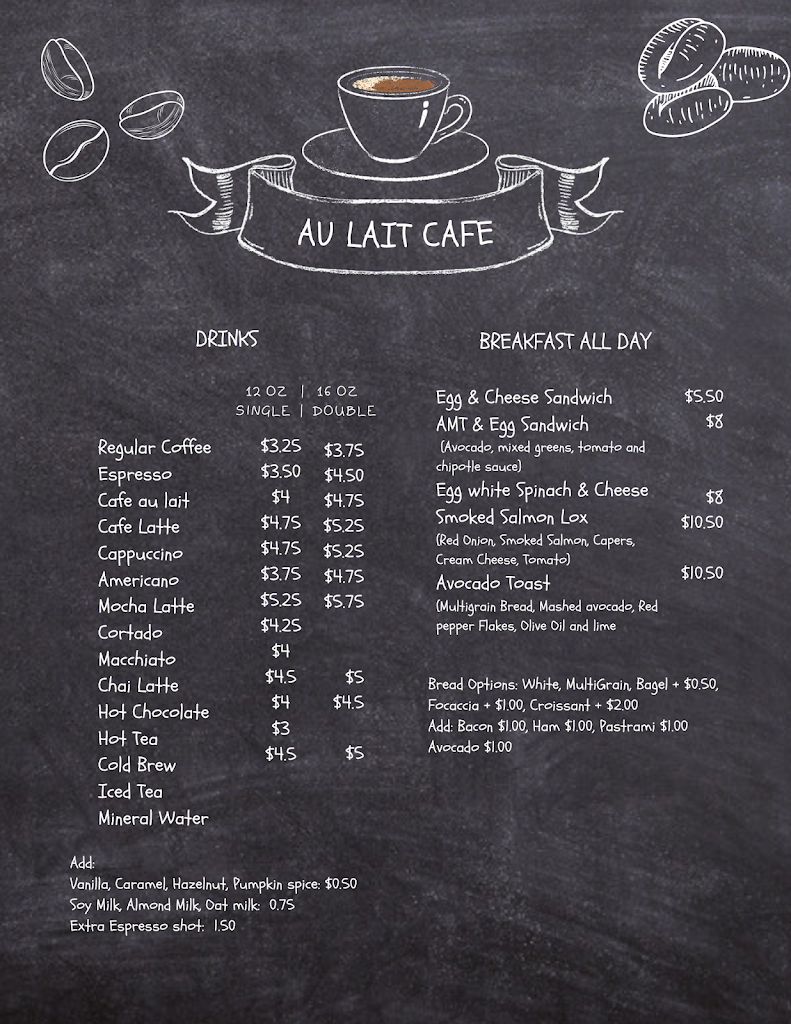 AU LAIT CAFE
DRINKS
12 OZ | 16 OZ
SINGLE | DOUBLE
Regular Coffee $3.25 $3.75
Espresso $3.50 $4.50
Cafe au lait $4 $4.75
Cafe Latte $4.75 $5.25
Cappuccino $4.75 $5.25
Americano $3.75 $4.75
Mocha Latte $5.25 $5.75
Cortado $4.25
Macchiato $4
Chai Latte $4.5 $5
Hot Chocolate $4 $4.5
Hot Tea $3
Cold Brew $4.5 $5
Iced Tea
Mineral Water
Add:
Vanilla, Caramel, Hazelnut, Pumpkin spice: $0.50
Soy Milk, Almond Milk, Oat milk: 0.75
Extra Espresso shot: 1.50
BREAKFAST ALL DAY
Egg & Cheese Sandwich $5.50
AMT & Egg Sandwich $8
(Avocado, mixed greens, tomato and
chipotle sauce)
Egg white Spinach & Cheese $8
Smoked Salmon Lox $10.50
(Red Onion, Smoked Salmon, Capers,
Cream Cheese, Tomato)
Avocado Toast $10.50
(Multigrain Bread, Mashed avocado, Red
pepper Flakes, Olive Oil and lime
Bread Options: White, MultiGrain, Bagel + $0.50,
Focaccia + $1.00, Croissant + $2.00
Add: Bacon $1.00, Ham $1.00, Pastrami $1.00
Avocado $1.00